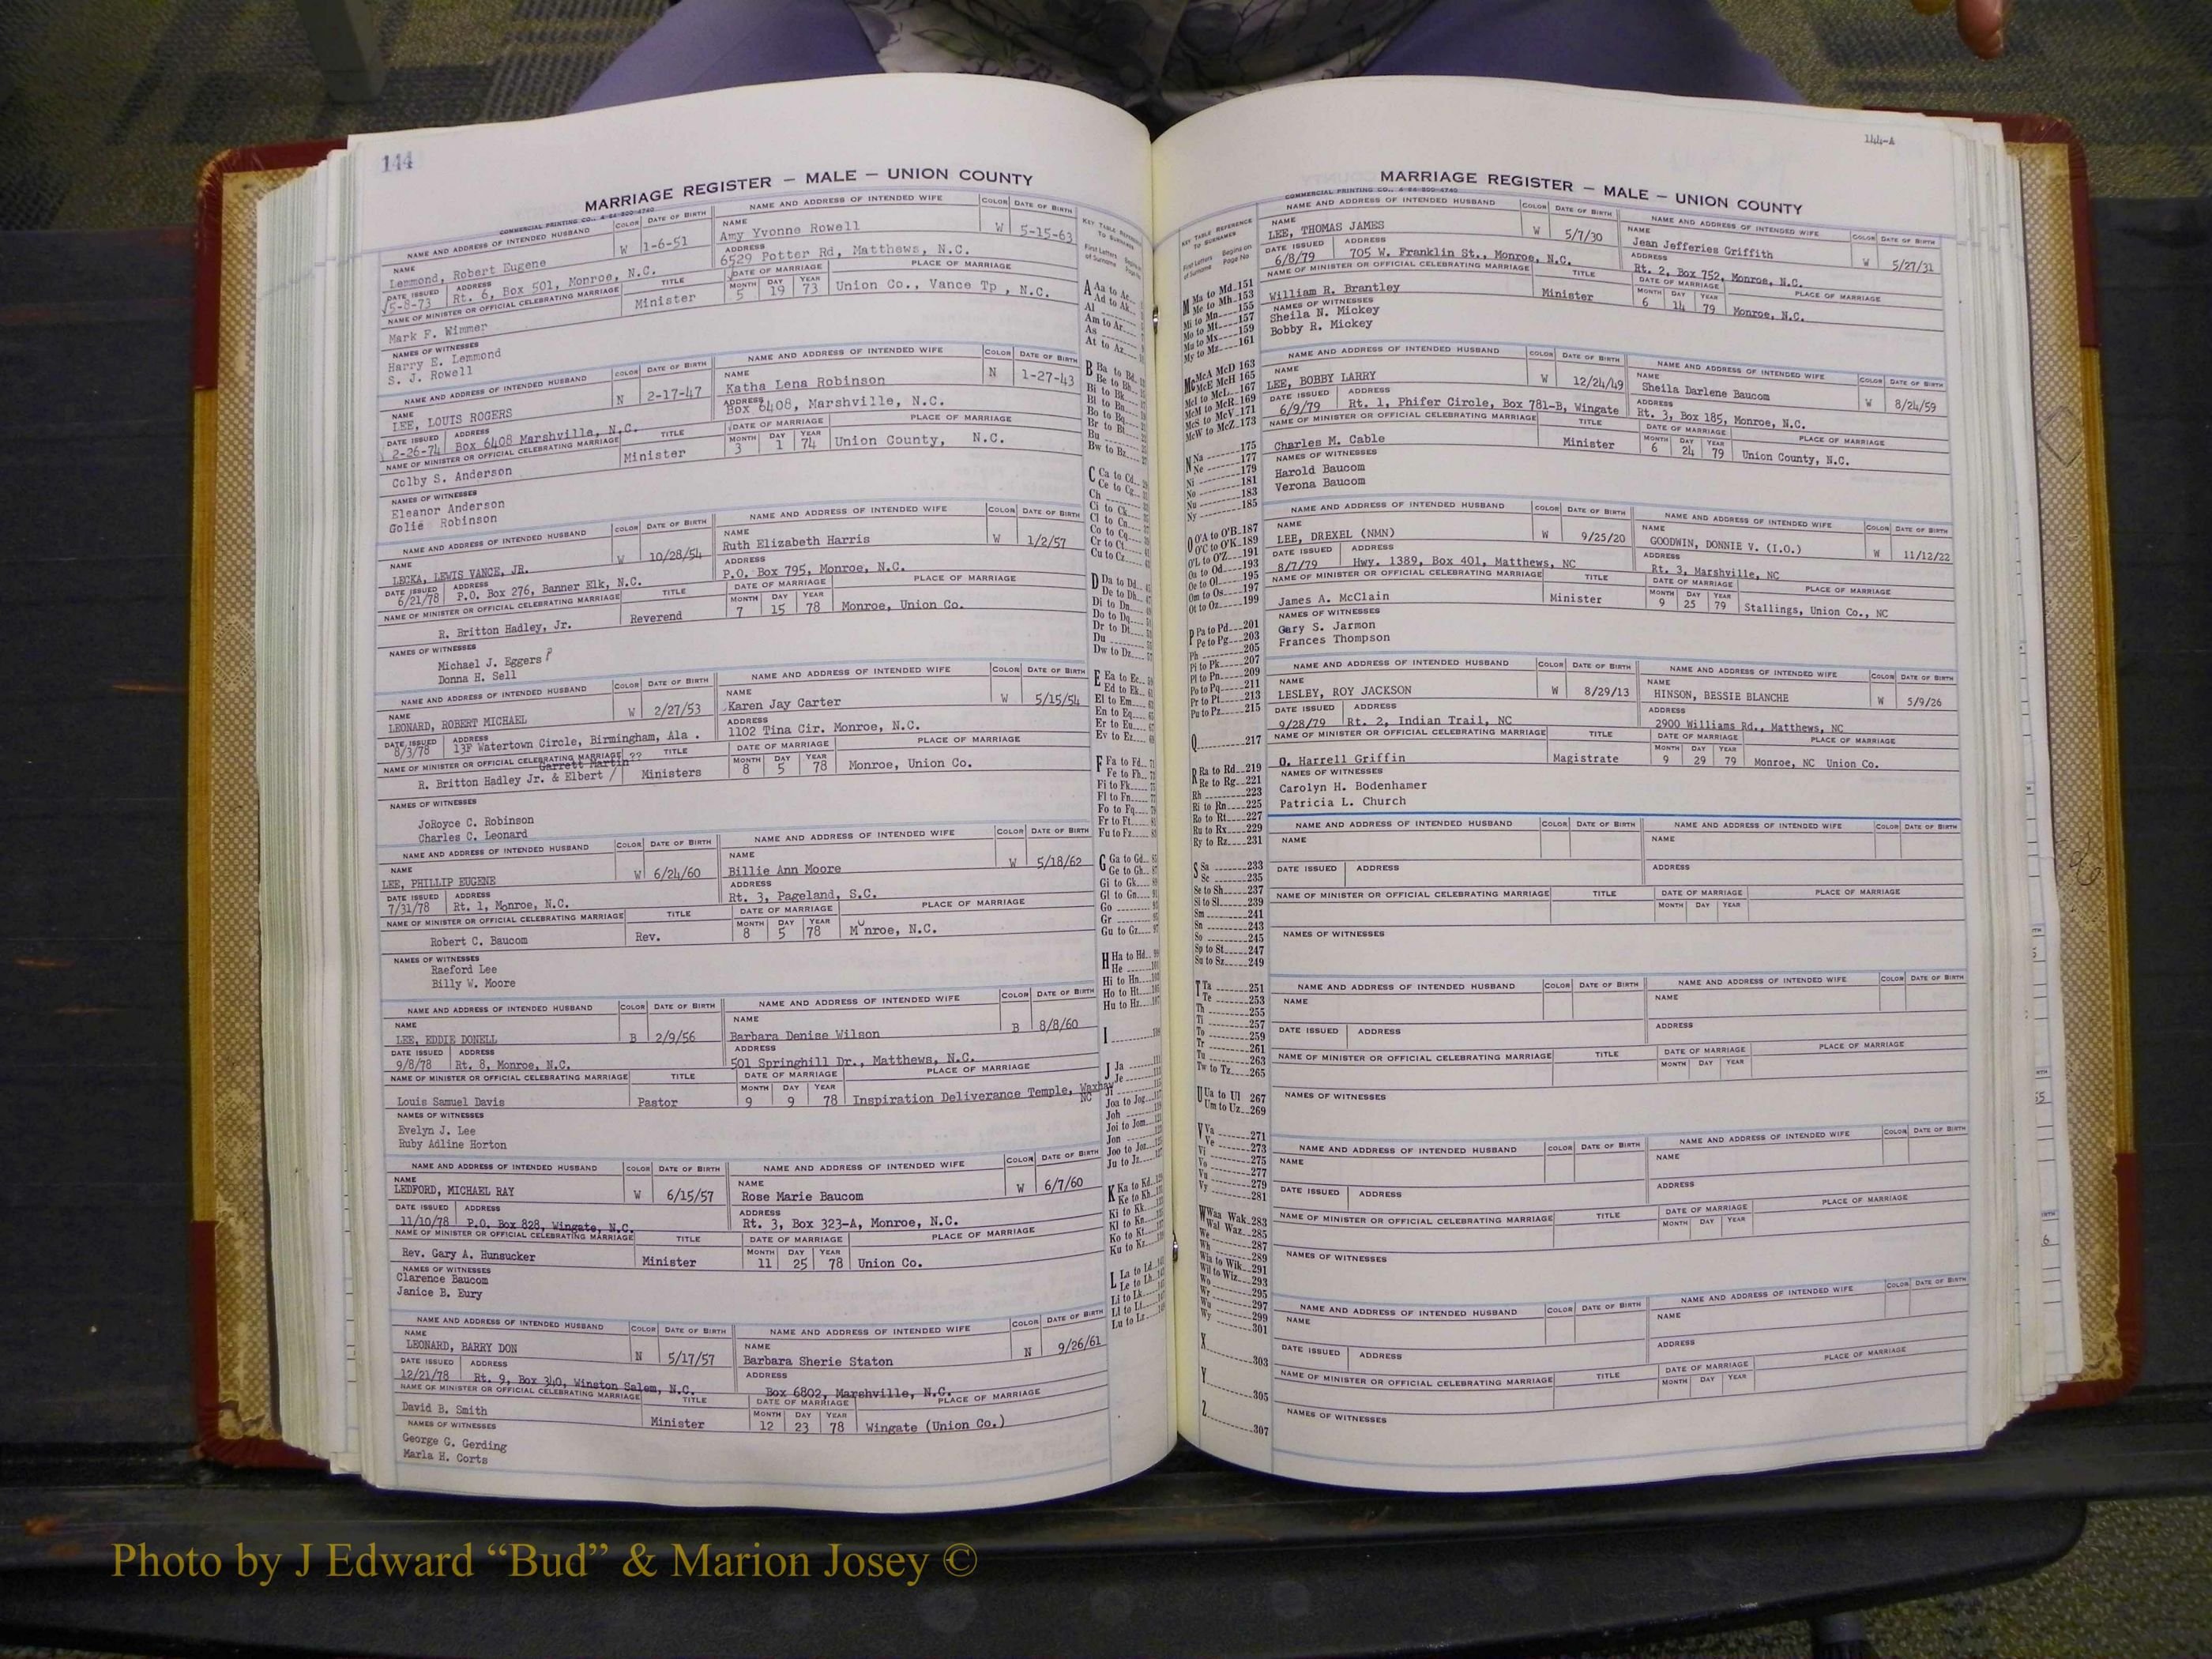 144
MARRIAGE REGISTER — MALE — UNION COUNTY
COMMERCIAL PRINTING CO., A-64-800-4740
NAME AND ADDRESS OF INTENDED HUSBAND COLOR DATE OF BIRTH NAME AND ADDRESS OF INTENDED WIFE COLOR DATE OF BIRTH
NAME Lemmond, Robert Eugene W 1-6-51 NAME Amy Yvonne Rowell W 5-15-63
DATE ISSUED 5-8-73 ADDRESS Rt. 6, Box 501, Monroe, N.C. ADDRESS 6529 Potter Rd, Matthews, N.C.
NAME OF MINISTER OR OFFICIAL CELEBRATING MARRIAGE TITLE DATE OF MARRIAGE PLACE OF MARRIAGE
Mark F. Wimmer Minister MONTH 5 DAY 19 YEAR 73 Union Co., Vance Tp , N.C.
NAMES OF WITNESSES
Harry E. Lemmond
S. J. Rowell
NAME AND ADDRESS OF INTENDED HUSBAND COLOR DATE OF BIRTH NAME AND ADDRESS OF INTENDED WIFE COLOR DATE OF BIRTH
NAME LEE, LOUIS ROGERS N 2-17-47 NAME Katha Lena Robinson N 1-27-43
DATE ISSUED 2-26-74 ADDRESS Box 6408 Marshville, N.C. ADDRESS Box 6408, Marshville, N.C.
NAME OF MINISTER OR OFFICIAL CELEBRATING MARRIAGE TITLE DATE OF MARRIAGE PLACE OF MARRIAGE
Colby S. Anderson Minister MONTH 3 DAY 1 YEAR 74 Union County, N.C.
NAMES OF WITNESSES
Eleanor Anderson
Golie Robinson
NAME AND ADDRESS OF INTENDED HUSBAND COLOR DATE OF BIRTH NAME AND ADDRESS OF INTENDED WIFE COLOR DATE OF BIRTH
NAME LECKA, LEWIS VANCE, JR. W 10/28/54 NAME Ruth Elizabeth Harris W 1/2/57
DATE ISSUED 6/21/78 ADDRESS P.O. Box 276, Banner Elk, N.C. ADDRESS P.O. Box 795, Monroe, N.C.
NAME OF MINISTER OR OFFICIAL CELEBRATING MARRIAGE TITLE DATE OF MARRIAGE PLACE OF MARRIAGE
R. Britton Hadley, Jr. Reverend MONTH 7 DAY 15 YEAR 78 Monroe, Union Co.
NAMES OF WITNESSES
Michael J. Eggers ?
Donna H. Sell
NAME AND ADDRESS OF INTENDED HUSBAND COLOR DATE OF BIRTH NAME AND ADDRESS OF INTENDED WIFE COLOR DATE OF BIRTH
NAME LEONARD, ROBERT MICHAEL W 2/27/53 NAME Karen Jay Carter W 5/15/54
DATE ISSUED 8/3/78 ADDRESS 13F Watertown Circle, Birmingham, Ala . ADDRESS 1102 Tina Cir. Monroe, N.C.
NAME OF MINISTER OR OFFICIAL CELEBRATING MARRIAGE TITLE DATE OF MARRIAGE PLACE OF MARRIAGE
Garrett Martin??
R. Britton Hadley Jr. & Elbert / Ministers MONTH 8 DAY 5 YEAR 78 Monroe, Union Co.
NAMES OF WITNESSES
JoRoyce C. Robinson
Charles C. Leonard
NAME AND ADDRESS OF INTENDED HUSBAND COLOR DATE OF BIRTH NAME AND ADDRESS OF INTENDED WIFE COLOR DATE OF BIRTH
NAME LEE, PHILLIP EUGENE W 6/24/60 NAME Billie Ann Moore W 5/18/62
DATE ISSUED 7/31/78 ADDRESS Rt. 1, Monroe, N.C. ADDRESS Rt. 3, Pageland, S.C.
NAME OF MINISTER OR OFFICIAL CELEBRATING MARRIAGE TITLE DATE OF MARRIAGE PLACE OF MARRIAGE
Robert C. Baucom Rev. MONTH 8 DAY 5 YEAR 78 Monroe, N.C.
NAMES OF WITNESSES
Raeford Lee
Billy W. Moore
NAME AND ADDRESS OF INTENDED HUSBAND COLOR DATE OF BIRTH NAME AND ADDRESS OF INTENDED WIFE COLOR DATE OF BIRTH
NAME LEE, EDDIE DONELL B 2/9/56 NAME Barbara Denise Wilson B 8/8/60
DATE ISSUED 9/8/78 ADDRESS Rt. 8, Monroe, N.C. ADDRESS 501 Springhill Dr., Matthews, N.C.
NAME OF MINISTER OR OFFICIAL CELEBRATING MARRIAGE TITLE DATE OF MARRIAGE PLACE OF MARRIAGE
Louis Samuel Davis Pastor MONTH 9 DAY 9 YEAR 78 Inspiration Deliverance Temple, Waxhaw NC
NAMES OF WITNESSES
Evelyn J. Lee
Ruby Adline Horton
NAME AND ADDRESS OF INTENDED HUSBAND COLOR DATE OF BIRTH NAME AND ADDRESS OF INTENDED WIFE COLOR DATE OF BIRTH
NAME LEDFORD, MICHAEL RAY W 6/15/57 NAME Rose Marie Baucom W 6/7/60
DATE ISSUED 11/10/78 ADDRESS P.O. Box 828, Wingate, N.C. ADDRESS Rt. 3, Box 323-A, Monroe, N.C.
NAME OF MINISTER OR OFFICIAL CELEBRATING MARRIAGE TITLE DATE OF MARRIAGE PLACE OF MARRIAGE
Rev. Gary A. Hunsucker Minister MONTH 11 DAY 25 YEAR 78 Union Co.
NAMES OF WITNESSES
Clarence Baucom
Janice B. Eury
NAME AND ADDRESS OF INTENDED HUSBAND COLOR DATE OF BIRTH NAME AND ADDRESS OF INTENDED WIFE COLOR DATE OF BIRTH
NAME LEONARD, BARRY DON N 5/17/57 NAME Barbara Sherie Staton N 9/26/61
DATE ISSUED 12/21/78 ADDRESS Rt. 9, Box 340, Winston Salem, N.C. ADDRESS Box 6802, Marshville, N.C.
NAME OF MINISTER OR OFFICIAL CELEBRATING MARRIAGE TITLE DATE OF MARRIAGE PLACE OF MARRIAGE
David B. Smith Minister MONTH 12 DAY 23 YEAR 78 Wingate (Union Co.)
NAMES OF WITNESSES
George C. Gerding
Marla H. Corts
KEY TABLE REFERENCE TO SURNAMES
First Letters of Surname
A Aa to Ac
Ad to Ak
Al
Am to Ar
As
At to Az
B Ba to Bd
Be to Bh
Bi to Bk
Bl to Bn
Bo to Bq
Br to Bt
Bu
Bw to Bz
C Ca to Cd
Ce to Cg
Ch
Ci to Ck
Cl to Cn
Co to Cq
Cr to Ct
Cu to Cz
D Da to Dd
De to Dh
Di to Dn
Do to Dq
Dr to Dt
Du
Dw to Dz
E Ea to Ec
Ed to Ek
El to Em
En to Eq
Er to Eu
Ev to Ez
F Fa to Fd
Fe to Fh
Fi to Fk
Fl to Fn
Fo to Fq
Fr to Ft
Fu to Fz
G Ga to Gd
Ge to Gh
Gi to Gk
Gl to Gn
Go
Gr
Gu to Gz
H Ha to Hd
He
Hi to Hn
Ho to Ht
Hu to Hz
I
J Ja
Je
Ji
Joa to Jog
Joh
Joi to Jom
Jon
Joo to Joz
Ju to Jz
K Ka to Kd
Ke to Kh
Ki to Kk
Kl to Kn
Ko to Kt
Ku to Kz
L La to Ld
Le to Lh
Li to Lk
Ll to Lt
Lu to Lz
144-A
MARRIAGE REGISTER — MALE — UNION COUNTY
COMMERCIAL PRINTING CO., A-64-800-4740
KEY TABLE REFERENCE TO SURNAMES
First Letters of Surname Begins on Page No
M Ma to Md 151
Me to Mh 153
Mi to Mn 155
Mo to Mt 157
Mu to Mx 159
My to Mz 161
Mc McA McD 163
McE McH 165
McI to McL 167
McM to McR 169
McS to McV 171
McW to McZ 173
N Na 175
Ne 177
Ni 179
181
No 183
Nu 185
Ny
O O'A to O'B 187
O'C to O'K 189
O'L to O'Z 191
Oa to Od 193
Oe to Ol 195
Om to Os 197
Ot to Oz 199
P Pa to Pd 201
Pe to Pg 203
Ph 205
Pi to Pk 207
Pl to Pn 209
Po to Pq 211
Pr to Pt 213
Pu to Pz 215
Q 217
R Ra to Rd 219
Re to Rg 221
Rh 223
Ri to Rn 225
Ro to Rt 227
Ru to Rx 229
Ry to Rz 231
S Sa 233
Sc 235
Se to Sh 237
Si to Sl 239
Sm 241
Sn 243
So 245
Sp to St 247
Su to Sz 249
T Ta 251
Te 253
Th 255
Ti 257
To 259
Tr 261
Tu 263
Tw to Tz 265
U Ua to Ul 267
Um to Uz 269
V Va 271
Ve 273
Vi 275
Vo 277
Vu 279
Vy 281
W Waa Wak 283
Wal Waz 285
We 287
Wh 289
Wia to Wik 291
Wil to Wiz 293
Wo 295
Wr 297
Wu 299
Wy 301
X 303
Y 305
Z 307
NAME AND ADDRESS OF INTENDED HUSBAND COLOR DATE OF BIRTH NAME AND ADDRESS OF INTENDED WIFE COLOR DATE OF BIRTH
NAME LEE, THOMAS JAMES W 5/7/30 NAME Jean Jefferies Griffith W 5/27/31
DATE ISSUED 6/8/79 ADDRESS 705 W. Franklin St., Monroe, N.C. ADDRESS Rt. 2, Box 752, Monroe, N.C.
NAME OF MINISTER OR OFFICIAL CELEBRATING MARRIAGE TITLE DATE OF MARRIAGE PLACE OF MARRIAGE
William R. Brantley Minister MONTH 6 DAY 14 YEAR 79 Monroe, N.C.
NAMES OF WITNESSES
Sheila N. Mickey
Bobby R. Mickey
NAME AND ADDRESS OF INTENDED HUSBAND COLOR DATE OF BIRTH NAME AND ADDRESS OF INTENDED WIFE COLOR DATE OF BIRTH
NAME LEE, BOBBY LARRY W 12/24/49 NAME Sheila Darlene Baucom W 8/24/59
DATE ISSUED 6/9/79 ADDRESS Rt. 1, Phifer Circle, Box 781-B, Wingate ADDRESS Rt. 3, Box 185, Monroe, N.C.
NAME OF MINISTER OR OFFICIAL CELEBRATING MARRIAGE TITLE DATE OF MARRIAGE PLACE OF MARRIAGE
Charles M. Cable Minister MONTH 6 DAY 24 YEAR 79 Union County, N.C.
NAMES OF WITNESSES
Harold Baucom
Verona Baucom
NAME AND ADDRESS OF INTENDED HUSBAND COLOR DATE OF BIRTH NAME AND ADDRESS OF INTENDED WIFE COLOR DATE OF BIRTH
NAME LEE, DREXEL (NMN) W 9/25/20 NAME GOODWIN, DONNIE V. (I.O.) W 11/12/22
DATE ISSUED 8/7/79 ADDRESS Hwy. 1389, Box 401, Matthews, NC ADDRESS Rt. 3, Marshville, NC
NAME OF MINISTER OR OFFICIAL CELEBRATING MARRIAGE TITLE DATE OF MARRIAGE PLACE OF MARRIAGE
James A. McClain Minister MONTH 9 DAY 25 YEAR 79 Stallings, Union Co., NC
NAMES OF WITNESSES
Gary S. Jarmon
Frances Thompson
NAME AND ADDRESS OF INTENDED HUSBAND COLOR DATE OF BIRTH NAME AND ADDRESS OF INTENDED WIFE COLOR DATE OF BIRTH
NAME LESLEY, ROY JACKSON W 8/29/13 NAME HINSON, BESSIE BLANCHE W 5/9/26
DATE ISSUED 9/28/79 ADDRESS Rt. 2, Indian Trail, NC ADDRESS 2900 Williams Rd., Matthews, NC
NAME OF MINISTER OR OFFICIAL CELEBRATING MARRIAGE TITLE DATE OF MARRIAGE PLACE OF MARRIAGE
O. Harrell Griffin Magistrate MONTH 9 DAY 29 YEAR 79 Monroe, NC Union Co.
NAMES OF WITNESSES
Carolyn H. Bodenhamer
Patricia L. Church
NAME AND ADDRESS OF INTENDED HUSBAND COLOR DATE OF BIRTH NAME AND ADDRESS OF INTENDED WIFE COLOR DATE OF BIRTH
NAME NAME
DATE ISSUED ADDRESS ADDRESS
NAME OF MINISTER OR OFFICIAL CELEBRATING MARRIAGE TITLE DATE OF MARRIAGE PLACE OF MARRIAGE
MONTH DAY YEAR
NAMES OF WITNESSES
NAME AND ADDRESS OF INTENDED HUSBAND COLOR DATE OF BIRTH NAME AND ADDRESS OF INTENDED WIFE COLOR DATE OF BIRTH
NAME NAME
DATE ISSUED ADDRESS ADDRESS
NAME OF MINISTER OR OFFICIAL CELEBRATING MARRIAGE TITLE DATE OF MARRIAGE PLACE OF MARRIAGE
MONTH DAY YEAR
NAMES OF WITNESSES
NAME AND ADDRESS OF INTENDED HUSBAND COLOR DATE OF BIRTH NAME AND ADDRESS OF INTENDED WIFE COLOR DATE OF BIRTH
NAME NAME
DATE ISSUED ADDRESS ADDRESS
NAME OF MINISTER OR OFFICIAL CELEBRATING MARRIAGE TITLE DATE OF MARRIAGE PLACE OF MARRIAGE
MONTH DAY YEAR
NAMES OF WITNESSES
NAME AND ADDRESS OF INTENDED HUSBAND COLOR DATE OF BIRTH NAME AND ADDRESS OF INTENDED WIFE COLOR DATE OF BIRTH
NAME NAME
DATE ISSUED ADDRESS ADDRESS
NAME OF MINISTER OR OFFICIAL CELEBRATING MARRIAGE TITLE DATE OF MARRIAGE PLACE OF MARRIAGE
MONTH DAY YEAR
NAMES OF WITNESSES
Photo by J Edward “Bud” & Marion Josey ©